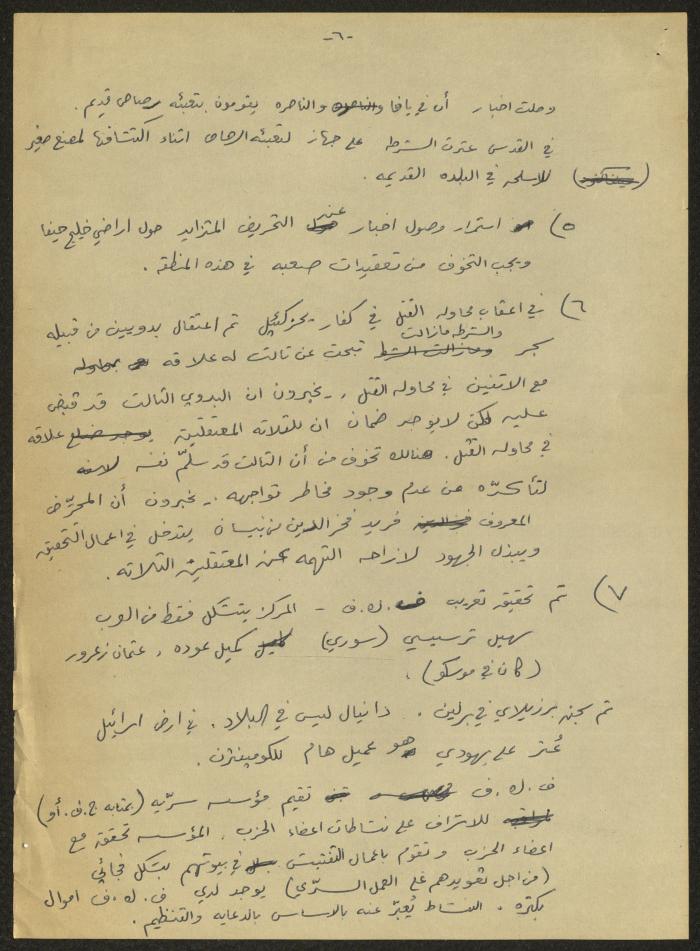 -٦-
وصلت اخبار أن في يافا والناصره والناصره يقومون بتعبئه رصاص قديم .
في القدس عثرت الشرطه على جهاز لتعبئه الرصاص اثناء اكتشافها لمصنع صغير
للاسلحه في البلده القديمه .
٥) استمرار وصول اخبار عن التحريض المتزايد حول اراضي خليج حيفا
ويجب التخوف من تعقيدات صعبه في هذه المنطقه .
٦) في اعقاب محاوله القتل في كفار يحزكئيل تم اعتقال بدويين من قبيله
والشرطه مازالت
تبحث عن ثالث له علاقه
مع الاثنين في محاوله القتل . يخبرون ان البدوي الثالث قد قبض
عليه لكن لا يوجد ضمان ان للثلاثه المعتقلين علاقه
في محاوله القتل . هنالك تخوف من أن الثالث قد سلّم نفسه
لتأكدّه من عدم وجود مخاطر تواجهه . يخبرون أن المحرّض
المعروف فريد فخر الدين من بيسان يتدخل في اعمال التحقيق
ويبذل الجهود لازاحه التهمه عن المعتقلين الثلاثه .
٧) تم تحقيق تعريب ف . ك . ف - المركز يتشكل فقط من العرب
سهيل ترسيسي (سوري) كميل عوده ، عثمان زعرور
(كان في موسكو) .
تم سجن برزيلاي في برلين . دانيال ليس في البلاد . في ارض اسرائيل
عُثر على يهودي هو عميل هام للكومينترن .
ف . ك . ف تقيم مؤسسه سرّيه (بمثابه ج . ف . أو)
للاشراف على نشاطات اعضاء الحزب . المؤسسه تحقق مع
اعضاء الحزب وتقوم باعمال التفتيش في بيوتهم بشكل فجائي
(من اجل تعويدهم على العمل السرّي) يوجد لدى ف . ك . ف اموال
بكثره . النشاط يُعبّر عنه بالاساس بالدعايه والتنظيم .